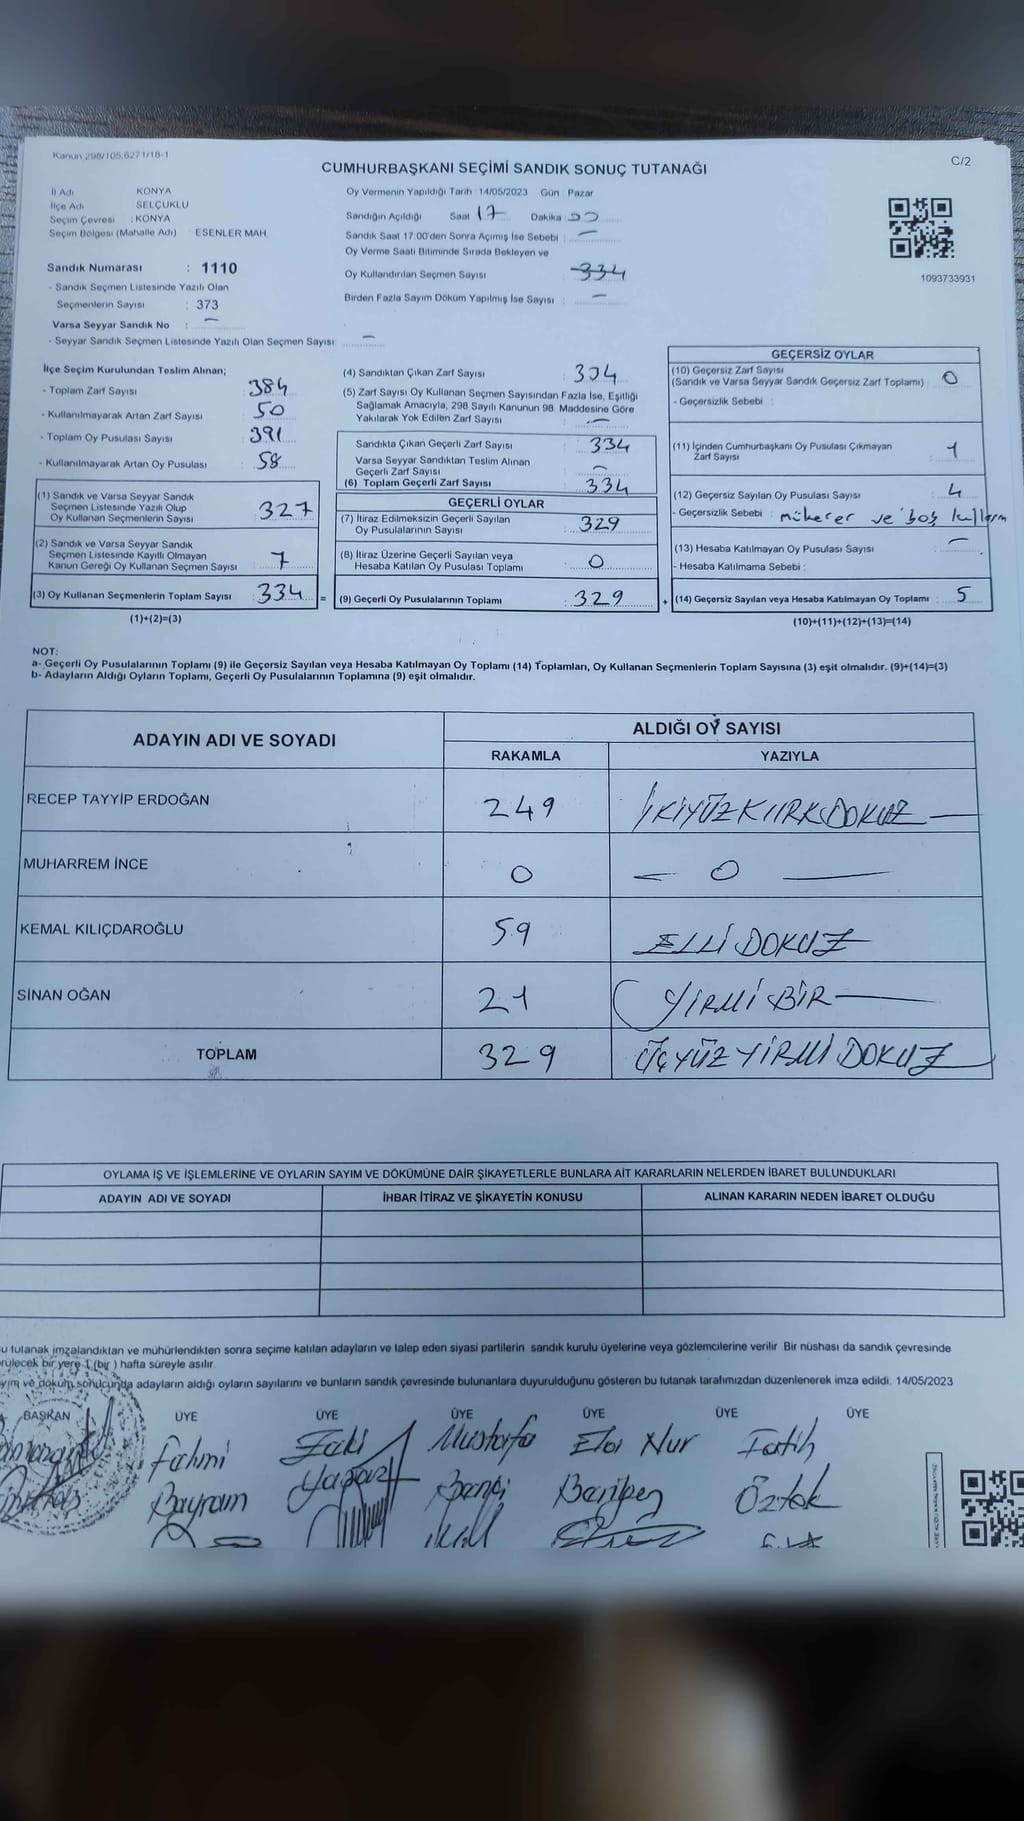 Kanun 298/105,6271/18-1
C/2
CUMHURBAŞKANI SEÇİMİ SANDIK SONUÇ TUTANAĞI
İl Adı KONYA
İlçe Adı SELÇUKLU
Seçim Çevresi : KONYA
Seçim Bölgesi (Mahalle Adı) ESENLER MAH.
Sandık Numarası : 1110
- Sandık Seçmen Listesinde Yazılı Olan
Seçmenlerin Sayısı : 373
Varsa Seyyar Sandık No : —
- Seyyar Sandık Seçmen Listesinde Yazılı Olan Seçmen Sayısı: —
Oy Vermenin Yapıldığı Tarih : 14/05/2023 Gün : Pazar
Sandığın Açıldığı Saat 17 Dakika
Sandık Saat 17:00'den Sonra Açımış İse Sebebi : —
Oy Verme Saati Bitiminde Sırada Bekleyen ve
Oy Kullandırılan Seçmen Sayısı 334
Birden Fazla Sayım Döküm Yapılmış İse Sayısı : —
1093733931
İlçe Seçim Kurulundan Teslim Alınan;
- Toplam Zarf Sayısı : 384
- Kullanılmayarak Artan Zarf Sayısı : 50
- Toplam Oy Pusulası Sayısı : 391
- Kullanılmayarak Artan Oy Pusulası : 58
(1) Sandık ve Varsa Seyyar Sandık
Seçmen Listesinde Yazılı Olup
Oy Kullanan Seçmenlerin Sayısı : 327
(2) Sandık ve Varsa Seyyar Sandık
Seçmen Listesinde Kayıtlı Olmayan
Kanun Gereği Oy Kullanan Seçmen Sayısı : 7
(3) Oy Kullanan Seçmenlerin Toplam Sayısı : 334 =
(1)+(2)=(3)
(4) Sandıktan Çıkan Zarf Sayısı : 334
(5) Zarf Sayısı Oy Kullanan Seçmen Sayısından Fazla İse, Eşitliği
Sağlamak Amacıyla, 298 Sayılı Kanunun 98. Maddesine Göre
Yakılarak Yok Edilen Zarf Sayısı : —
Sandıkta Çıkan Geçerli Zarf Sayısı : 334
Varsa Seyyar Sandıktan Teslim Alınan
Geçerli Zarf Sayısı : —
(6) Toplam Geçerli Zarf Sayısı : 334
GEÇERLİ OYLAR
(7) İtiraz Edilmeksizin Geçerli Sayılan
Oy Pusulalarının Sayısı : 329
(8) İtiraz Üzerine Geçerli Sayılan veya
Hesaba Katılan Oy Pusulası Toplamı : 0
(9) Geçerli Oy Pusulalarının Toplamı : 329 +
GEÇERSİZ OYLAR
(10) Geçersiz Zarf Sayısı
(Sandık ve Varsa Seyyar Sandık Geçersiz Zarf Toplamı) : 0
- Geçersizlik Sebebi :
(11) İçinden Cumhurbaşkanı Oy Pusulası Çıkmayan
Zarf Sayısı : 1
(12) Geçersiz Sayılan Oy Pusulası Sayısı : 4
- Geçersizlik Sebebi : mükerer ve boş
(13) Hesaba Katılmayan Oy Pusulası Sayısı : —
- Hesaba Katılmama Sebebi :
(14) Geçersiz Sayılan veya Hesaba Katılmayan Oy Toplamı : 5
(10)+(11)+(12)+(13)=(14)
NOT:
a- Geçerli Oy Pusulalarının Toplamı (9) ile Geçersiz Sayılan veya Hesaba Katılmayan Oy Toplamı (14) Toplamları, Oy Kullanan Seçmenlerin Toplam Sayısına (3) eşit olmalıdır. (9)+(14)=(3)
b- Adayların Aldığı Oyların Toplamı, Geçerli Oy Pusulalarının Toplamına (9) eşit olmalıdır.
ADAYIN ADI VE SOYADI
ALDIĞI OY SAYISI
RAKAMLA YAZIYLA
RECEP TAYYİP ERDOĞAN 249 İKİYÜZKIIRKDOKUZ —
MUHARREM İNCE 0 — 0 —
KEMAL KILIÇDAROĞLU 59 ELLİ DOKUZ
SİNAN OĞAN 21 YİRMİ BİR —
TOPLAM 329 ÜÇYÜZ YİRMİ DOKUZ
OYLAMA İŞ VE İŞLEMLERİNE VE OYLARIN SAYIM VE DÖKÜMÜNE DAİR ŞİKAYETLERLE BUNLARA AİT KARARLARIN NELERDEN İBARET BULUNDUKLARI
ADAYIN ADI VE SOYADI İHBAR İTİRAZ VE ŞİKAYETİN KONUSU ALINAN KARARIN NEDEN İBARET OLDUĞU
u tutanak imzalandıktan ve mühürlendikten sonra seçime katılan adayların ve talep eden siyasi partilerin sandık kurulu üyelerine veya gözlemcilerine verilir. Bir nüshası da sandık çevresinde
rülecek bir yere 1 (bir ) hafta süreyle asılır.
yım ve döküm sonucunda adayların aldığı oyların sayılarını ve bunların sandık çevresinde bulunanlara duyurulduğunu gösteren bu tutanak tarafımızdan düzenlenerek imza edildi. 14/05/2023
BAŞKAN ÜYE ÜYE ÜYE ÜYE ÜYE ÜYE
Fahmi Zaki Mustafa Elbi Nur Fatih
Bayram Öztok